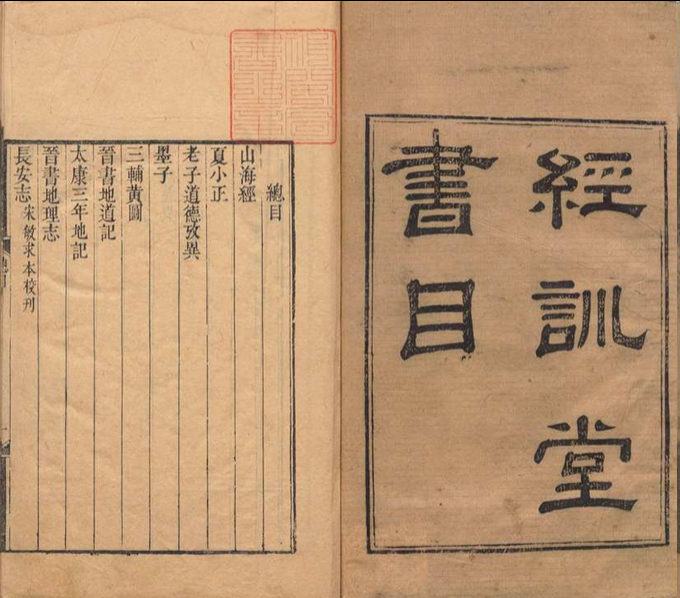 經訓堂
書目
總目
山海經
夏小正
老子道德攷異
墨子
三輔黃圖
晉書地道記
太康三年地記
晉書地理志
長安志宋敏求本校刊